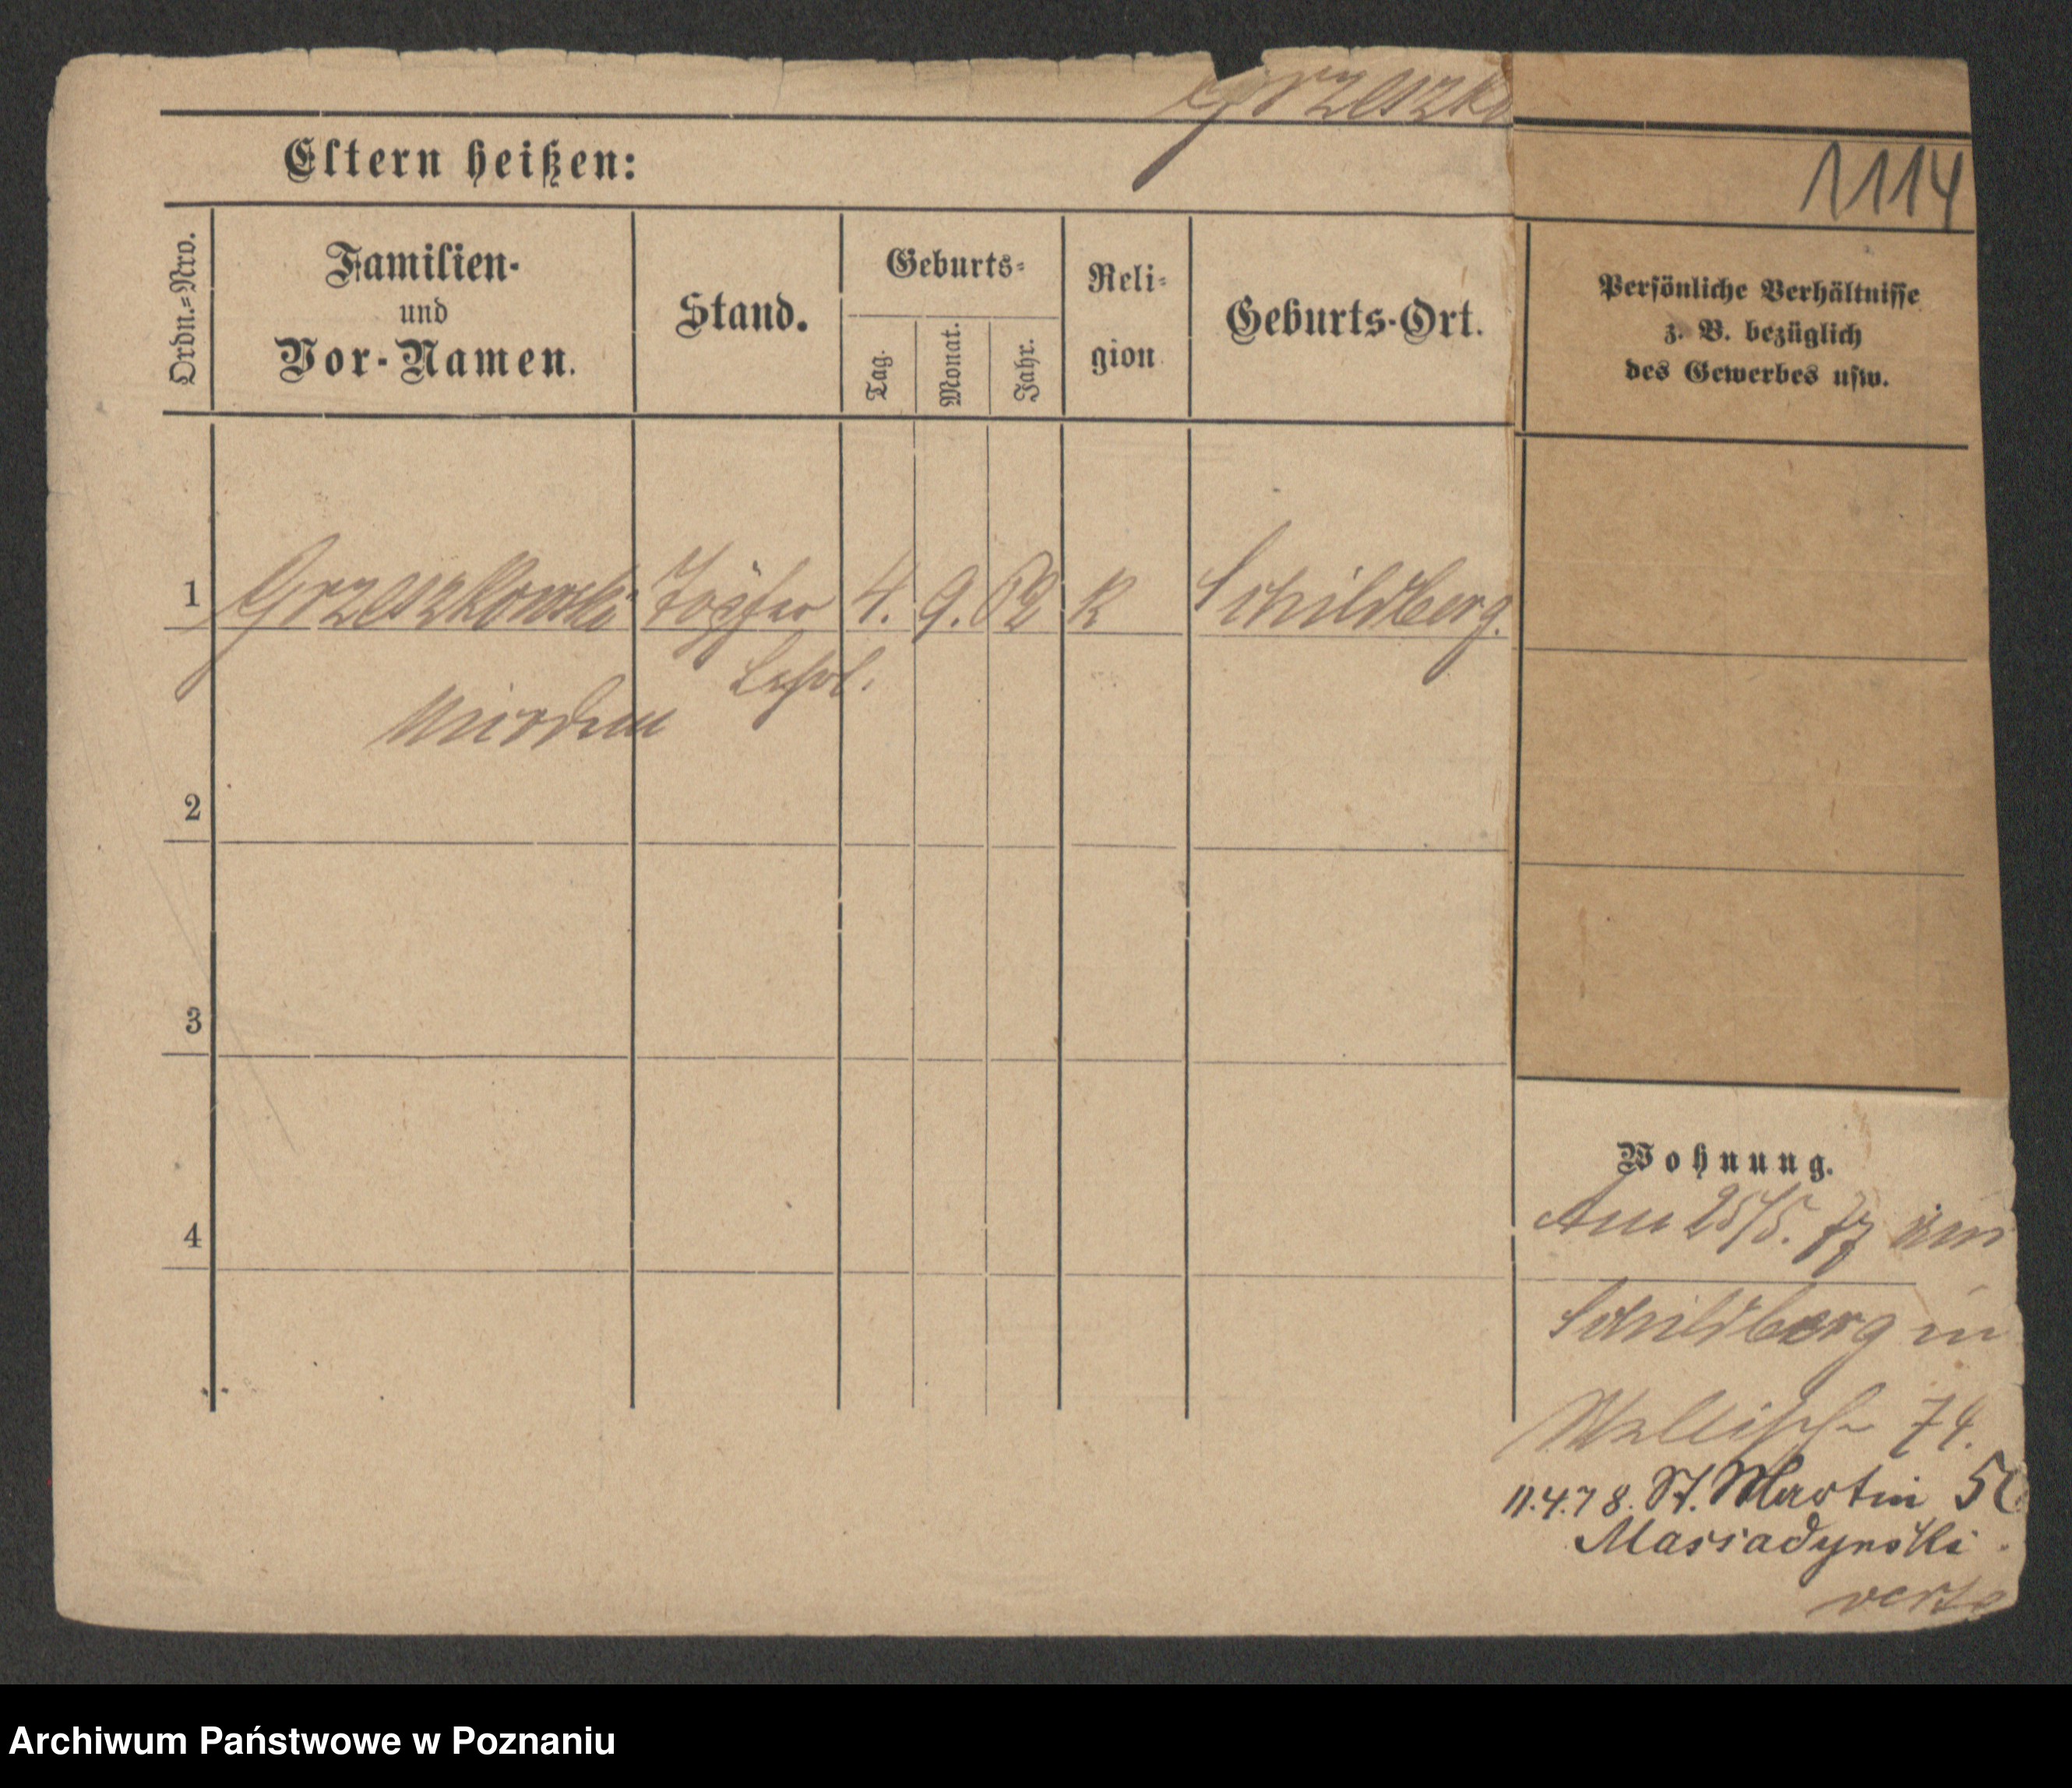 Grzeszko
1114
Eltern heißen:
Ordn.=Nro.
Familien-
und
Vor-Namen.
Stand.
Geburts=
Tag.
Monat.
Jahr.
Reli=
gion
Geburts-Ort.
Persönliche Verhältnisse
z. B. bezüglich
des Gewerbes usw.
1 Grzeszkowski Töpfer 4. 9. 62 k Schildberg.
Lehrl.
2
3
4
Wohnung.
Am 25/5. 77 von
Schildberg in
Wallisch 74.
11.4.78. St. Martin
verte
Archiwum Państwowe w Poznaniu